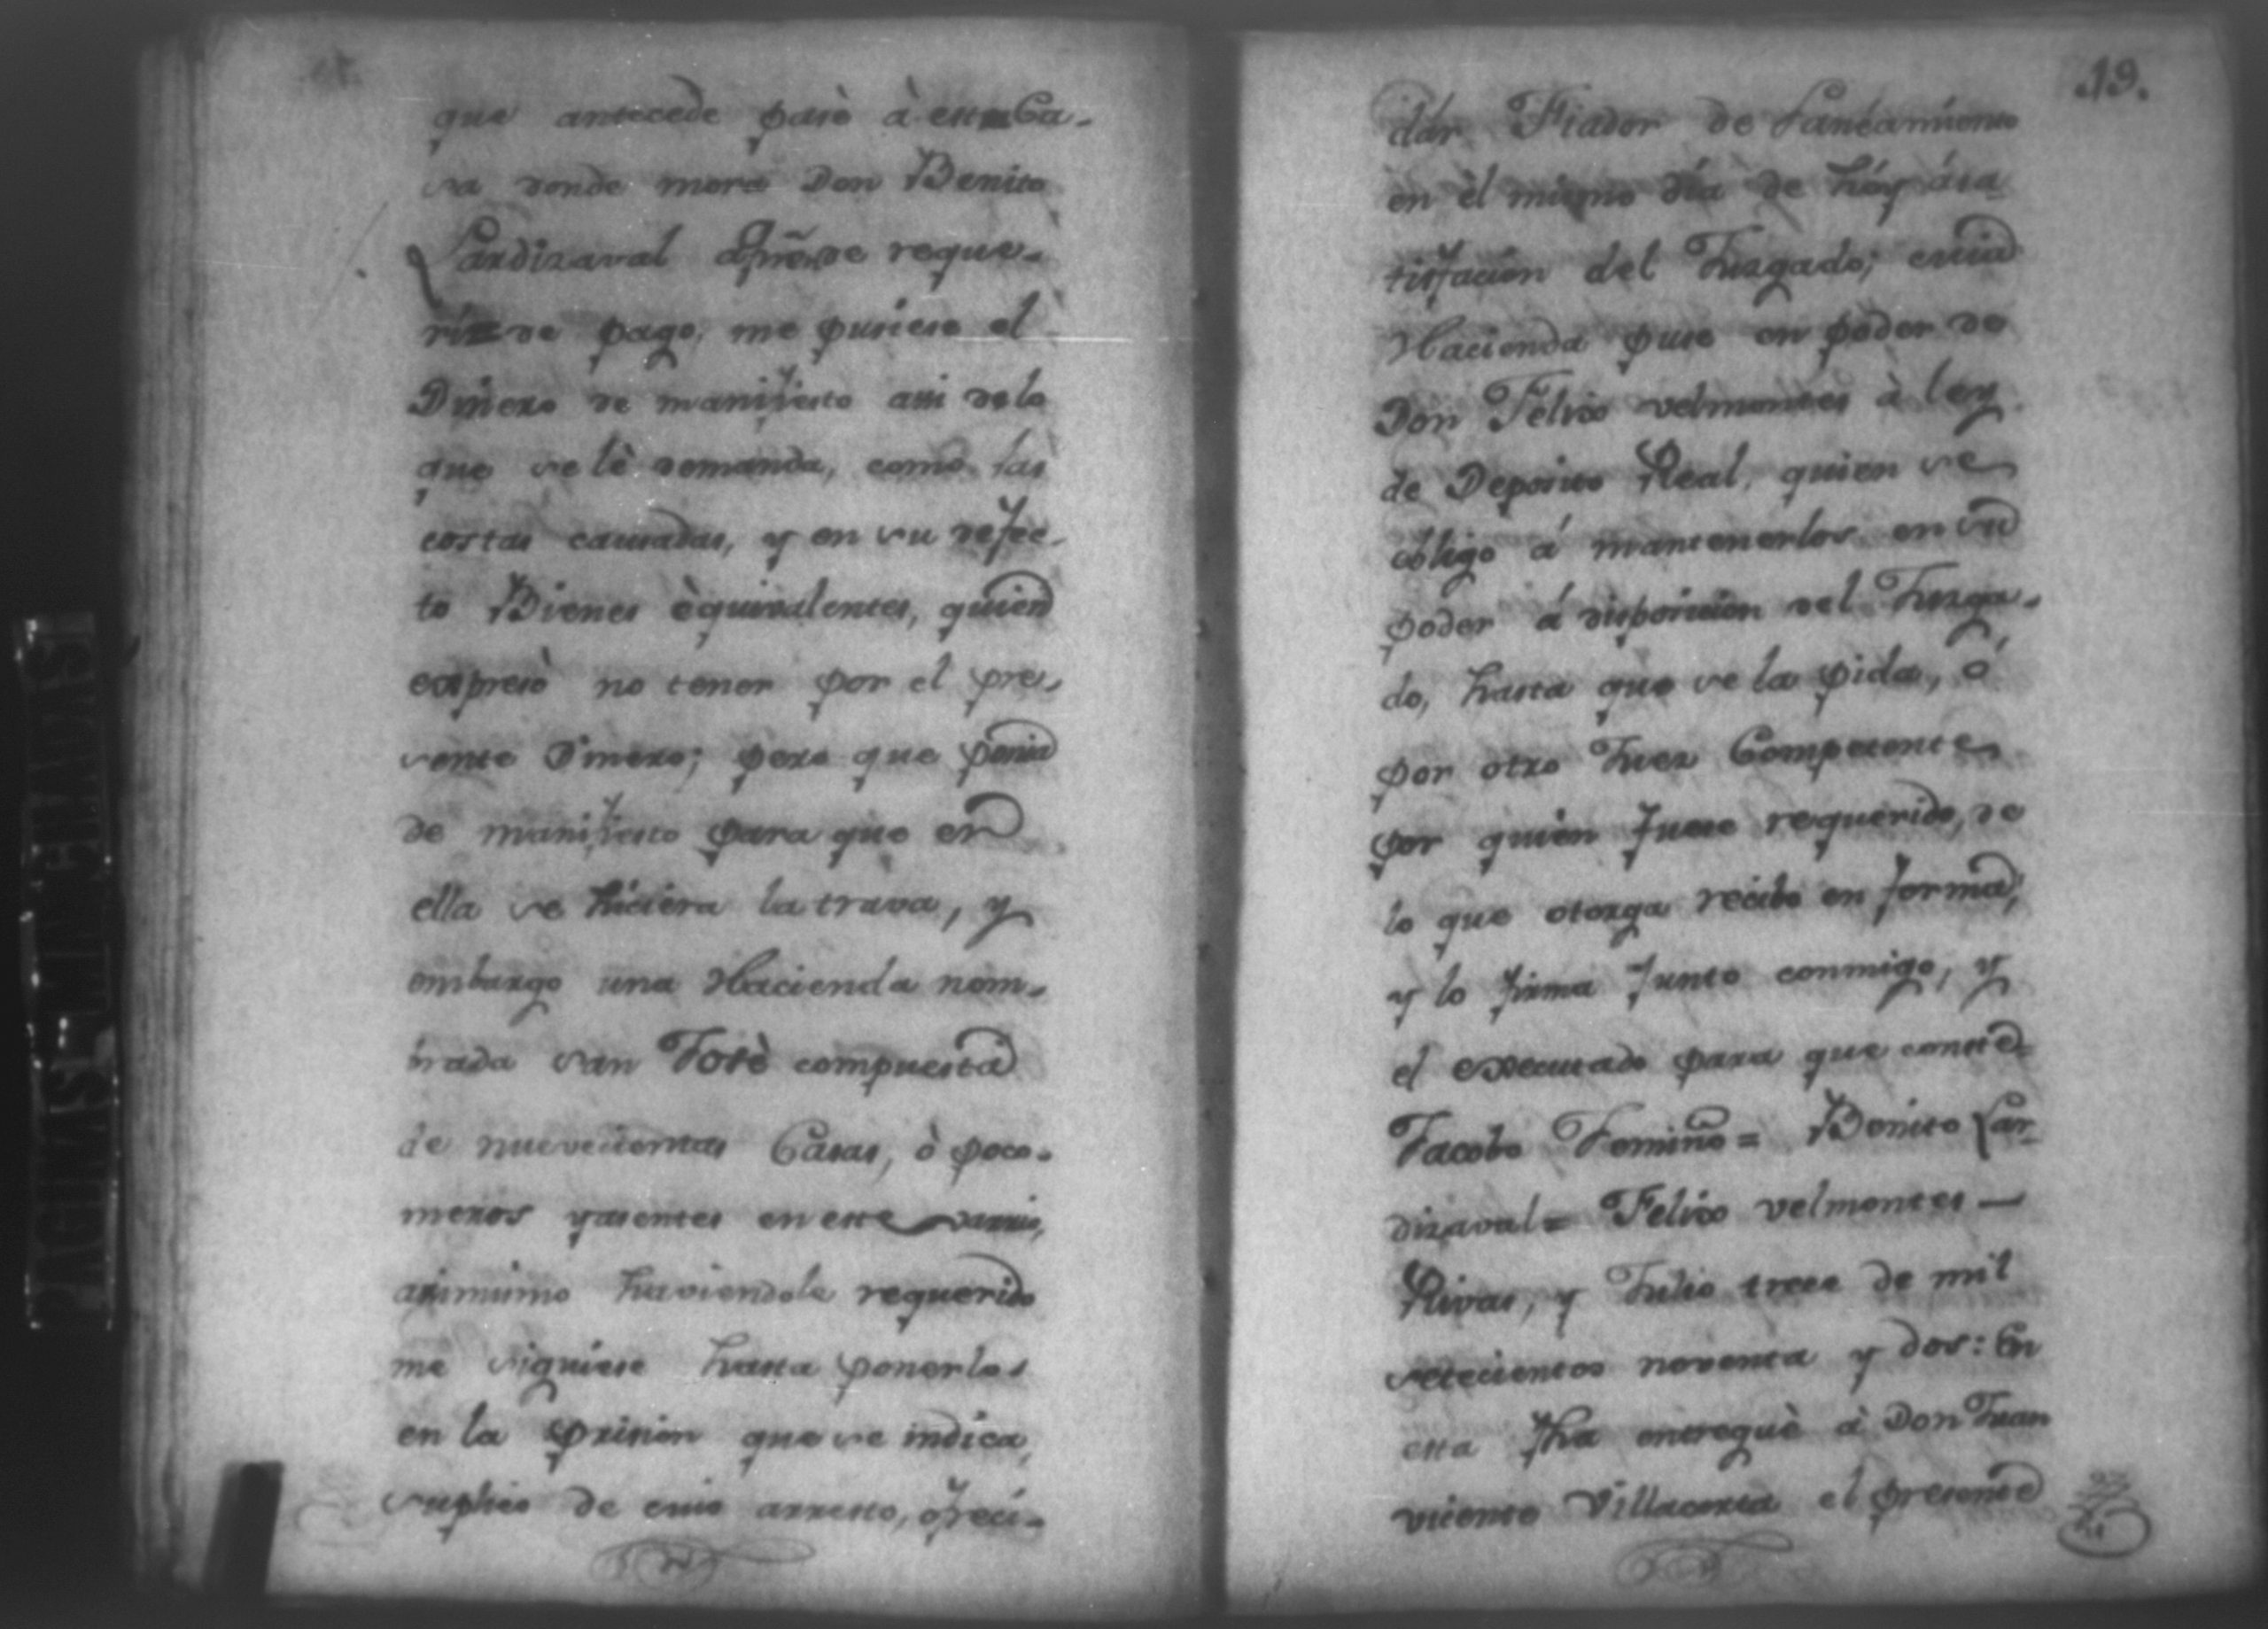 que antecede pasè à esta Ca-
sa donde mora Don Benito
Lardizaval aquien se reque-
rí de pago, me pusiese el
Dinero de manifiesto asi de lo
que se lè demanda, como las
costas causadas, y en su defec-
to Bienes èquivalentes, quien
expresò no tener por el pre-
sente Dinero; pero que ponia
de manifiesto para que en
ella se hiciera la trava, y
embargo una Hacienda nom-
brada San Josè compuesta
de nuevecientas Casas, ò poco
menos yasentes en este
asimismo haviendole requerido
me siguiese hasta ponerlo
en la prision que se indica,
suplico de cuio arresto, ofreci-
19.
dar Fiador de Saneamiento
en èl mismo día de hóy ása-
tisfacion del Juzgado; cuia
Hacienda puse en poder de
Don Felix velmontes à ley
de Deposito Real, quien se
obligo á mantenerlos en su
poder á disposicion del Juzga-
do, hasta que se la pida, ó
por otro Juez Competente
por quien fuese requerido, de
lo que otorga recibo en forma,
y lo firma Junto conmigo, y
el executado para que conste=
Jacobo Fomiño= Benito Lar-
dizaval= Felix velmontes —
Rivas, y Julio trece de mil
setecientos noventa y dos: En
esta fha entreguè à Don Juan
vicente Villacorta el presente